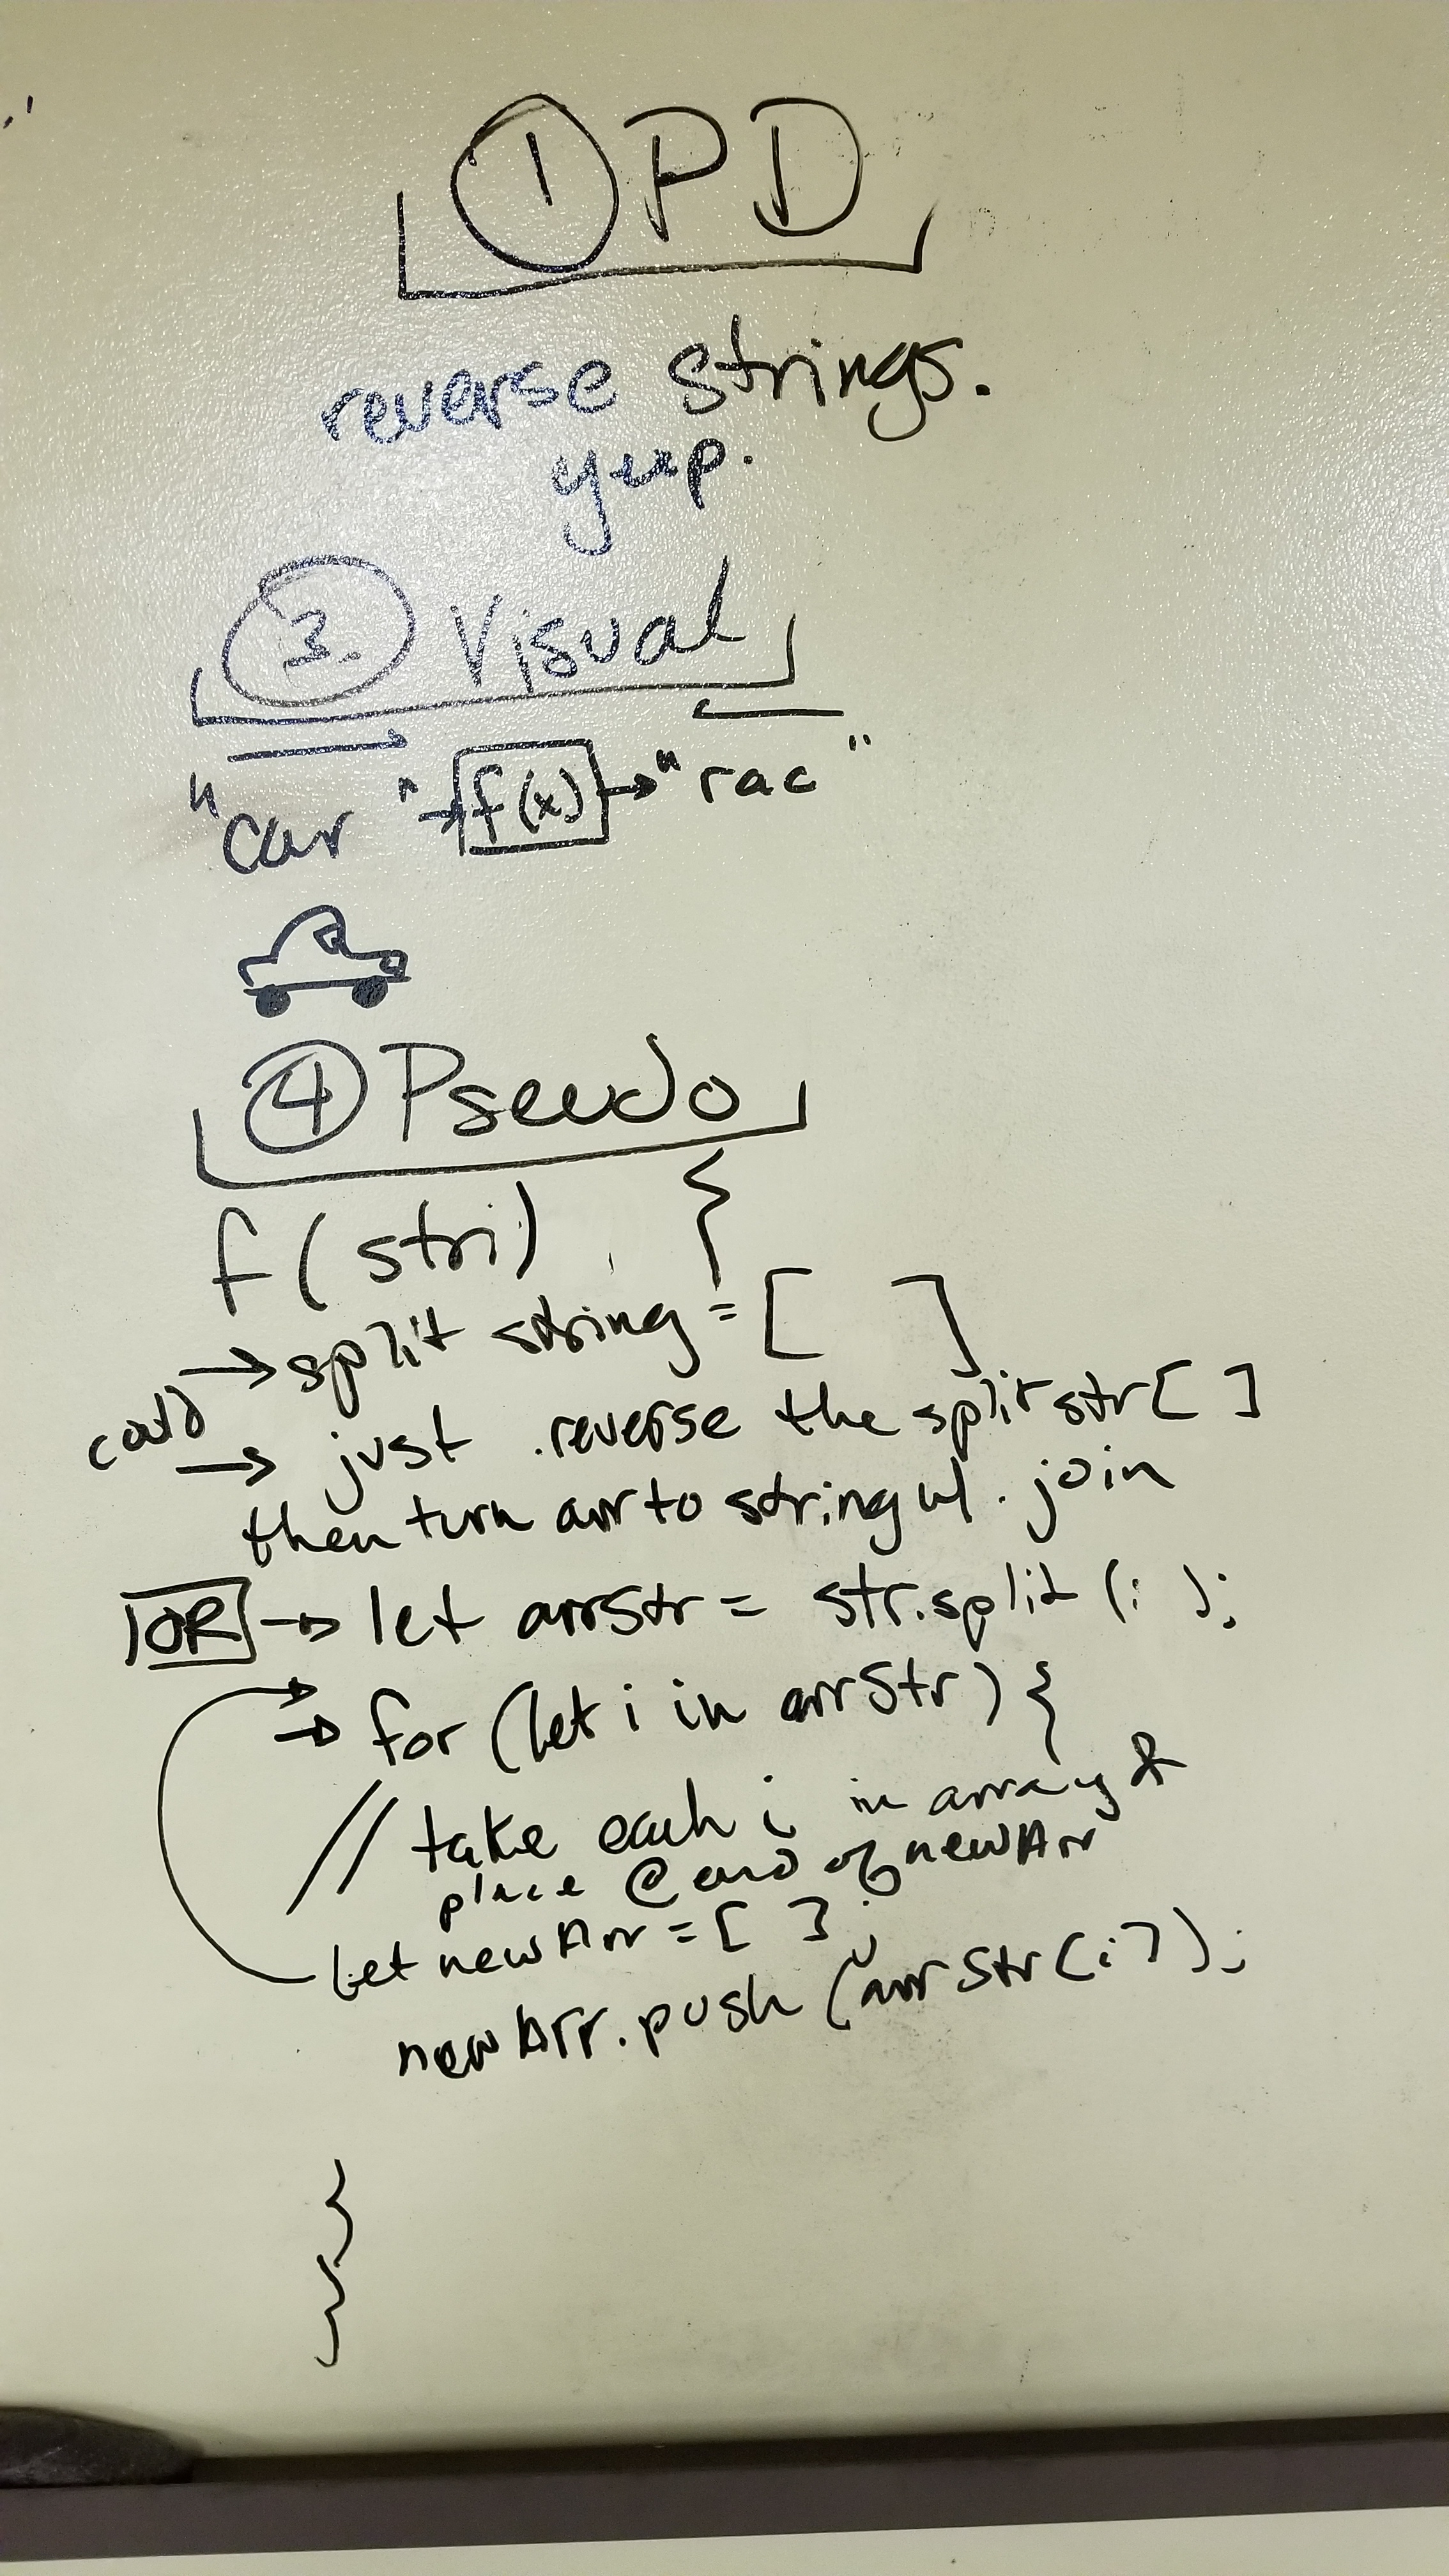 ① PD
reverse strings.
yup.
③. Visual
"car" → f(x) → "rac"
④ Pseudo
f(stri) {
→ split string = [ ]
could → just .reverse the splitstr[ ]
then turn arr to string w/ .join
OR → let arrStr = str.split( );
→ for (let i in arrStr) {
// take each i in array &
place @ end of newArr
let newArr = [ ];
newArr.push(arrStr[i]);
}
}